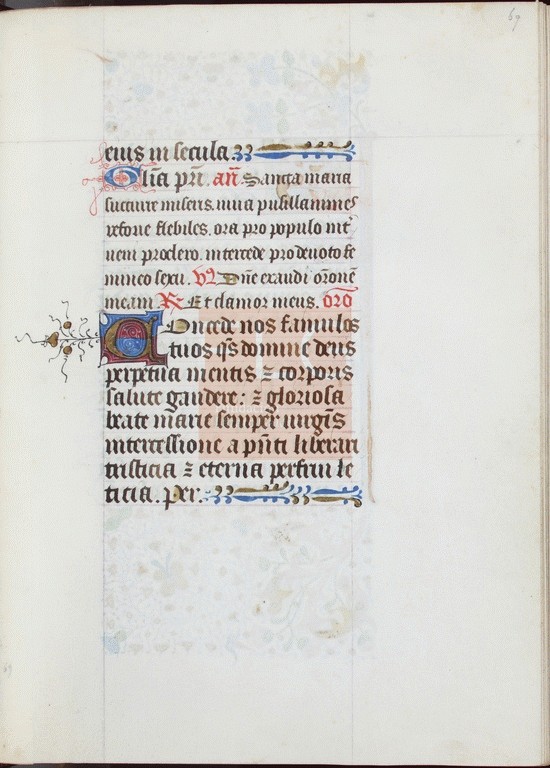 69
eius in secula.
Gl͞ia pri. an̄. Sancta maria
succurre miseris. iuua pusillanimes
refoue flebiles. ora pro populo int̾
ueni pro clero. intercede pro deuoto fe
mineo sexu. V9 Dn̄e exaudi or̄one͞
meam. R Et clamor meus. or̄o
Concede nos famulos
tuos q̄s domine deus
perpetua mentis ⁊ corporis
salute gaudere: ⁊ gloriosa
beate marie semper uirgīs
intercessione a pn̄ti liberari
tristicia ⁊ eterna perfrui le
ticia. Per.